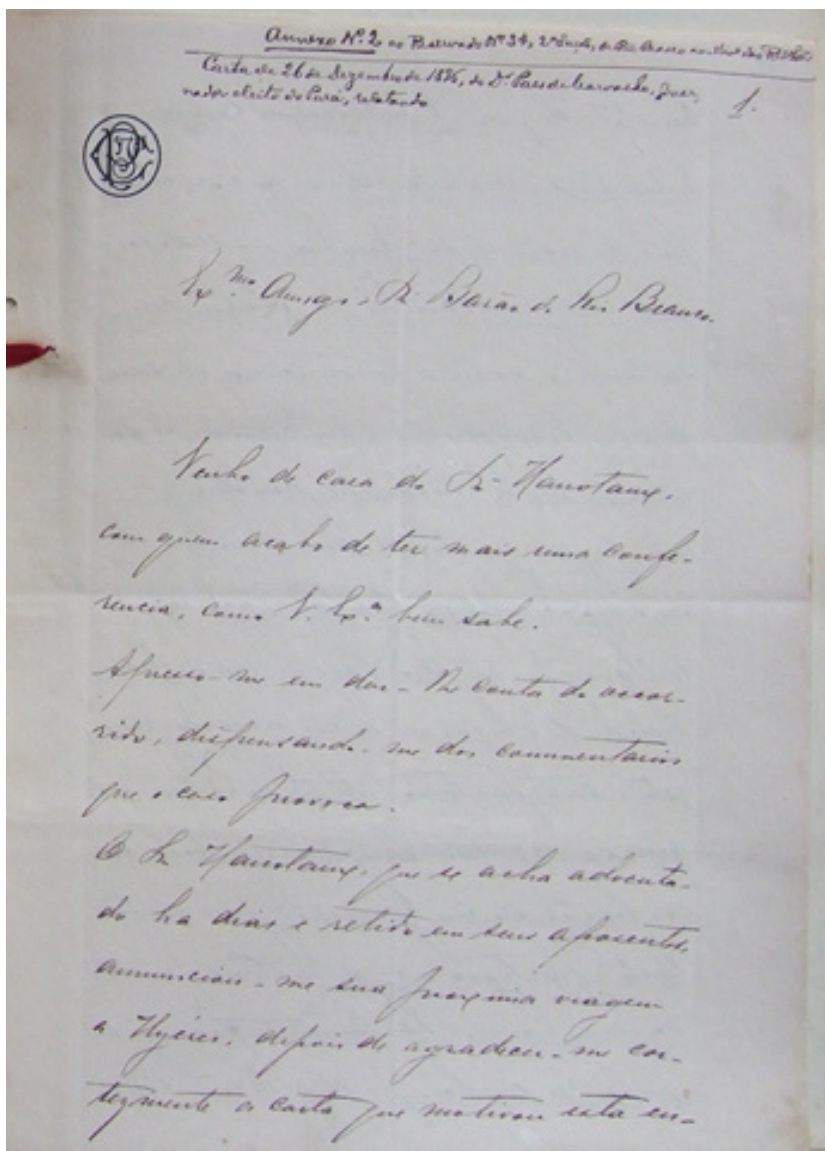 Annexo Nº 2 ao Reservado Nº 34, 2ª Secção, de Rio Branco ao
Carta de 26 de Dezembro de 1896, do Dr. Paes de Carvalho, Gover-
nador eleito do Pará, relatando
1.
Exmo Amigo, Sr. Barão do Rio Branco.
Venho de casa do Sr. Hanotaux,
com quem acabo de ter mais uma confe-
rencia, como V. Exª bem sabe.
Apresso-me em dar-lhe conta do occor-
rido, dispensando-me dos commentarios
que o caso provoca.
O Sr. Hanotaux, que se acha adoenta-
do ha dias e retido em seus aposentos,
annunciou-me sua proxima viagem
a Hyéres, depois de agradecer-me cor-
tezmente a carta que motivou esta en-